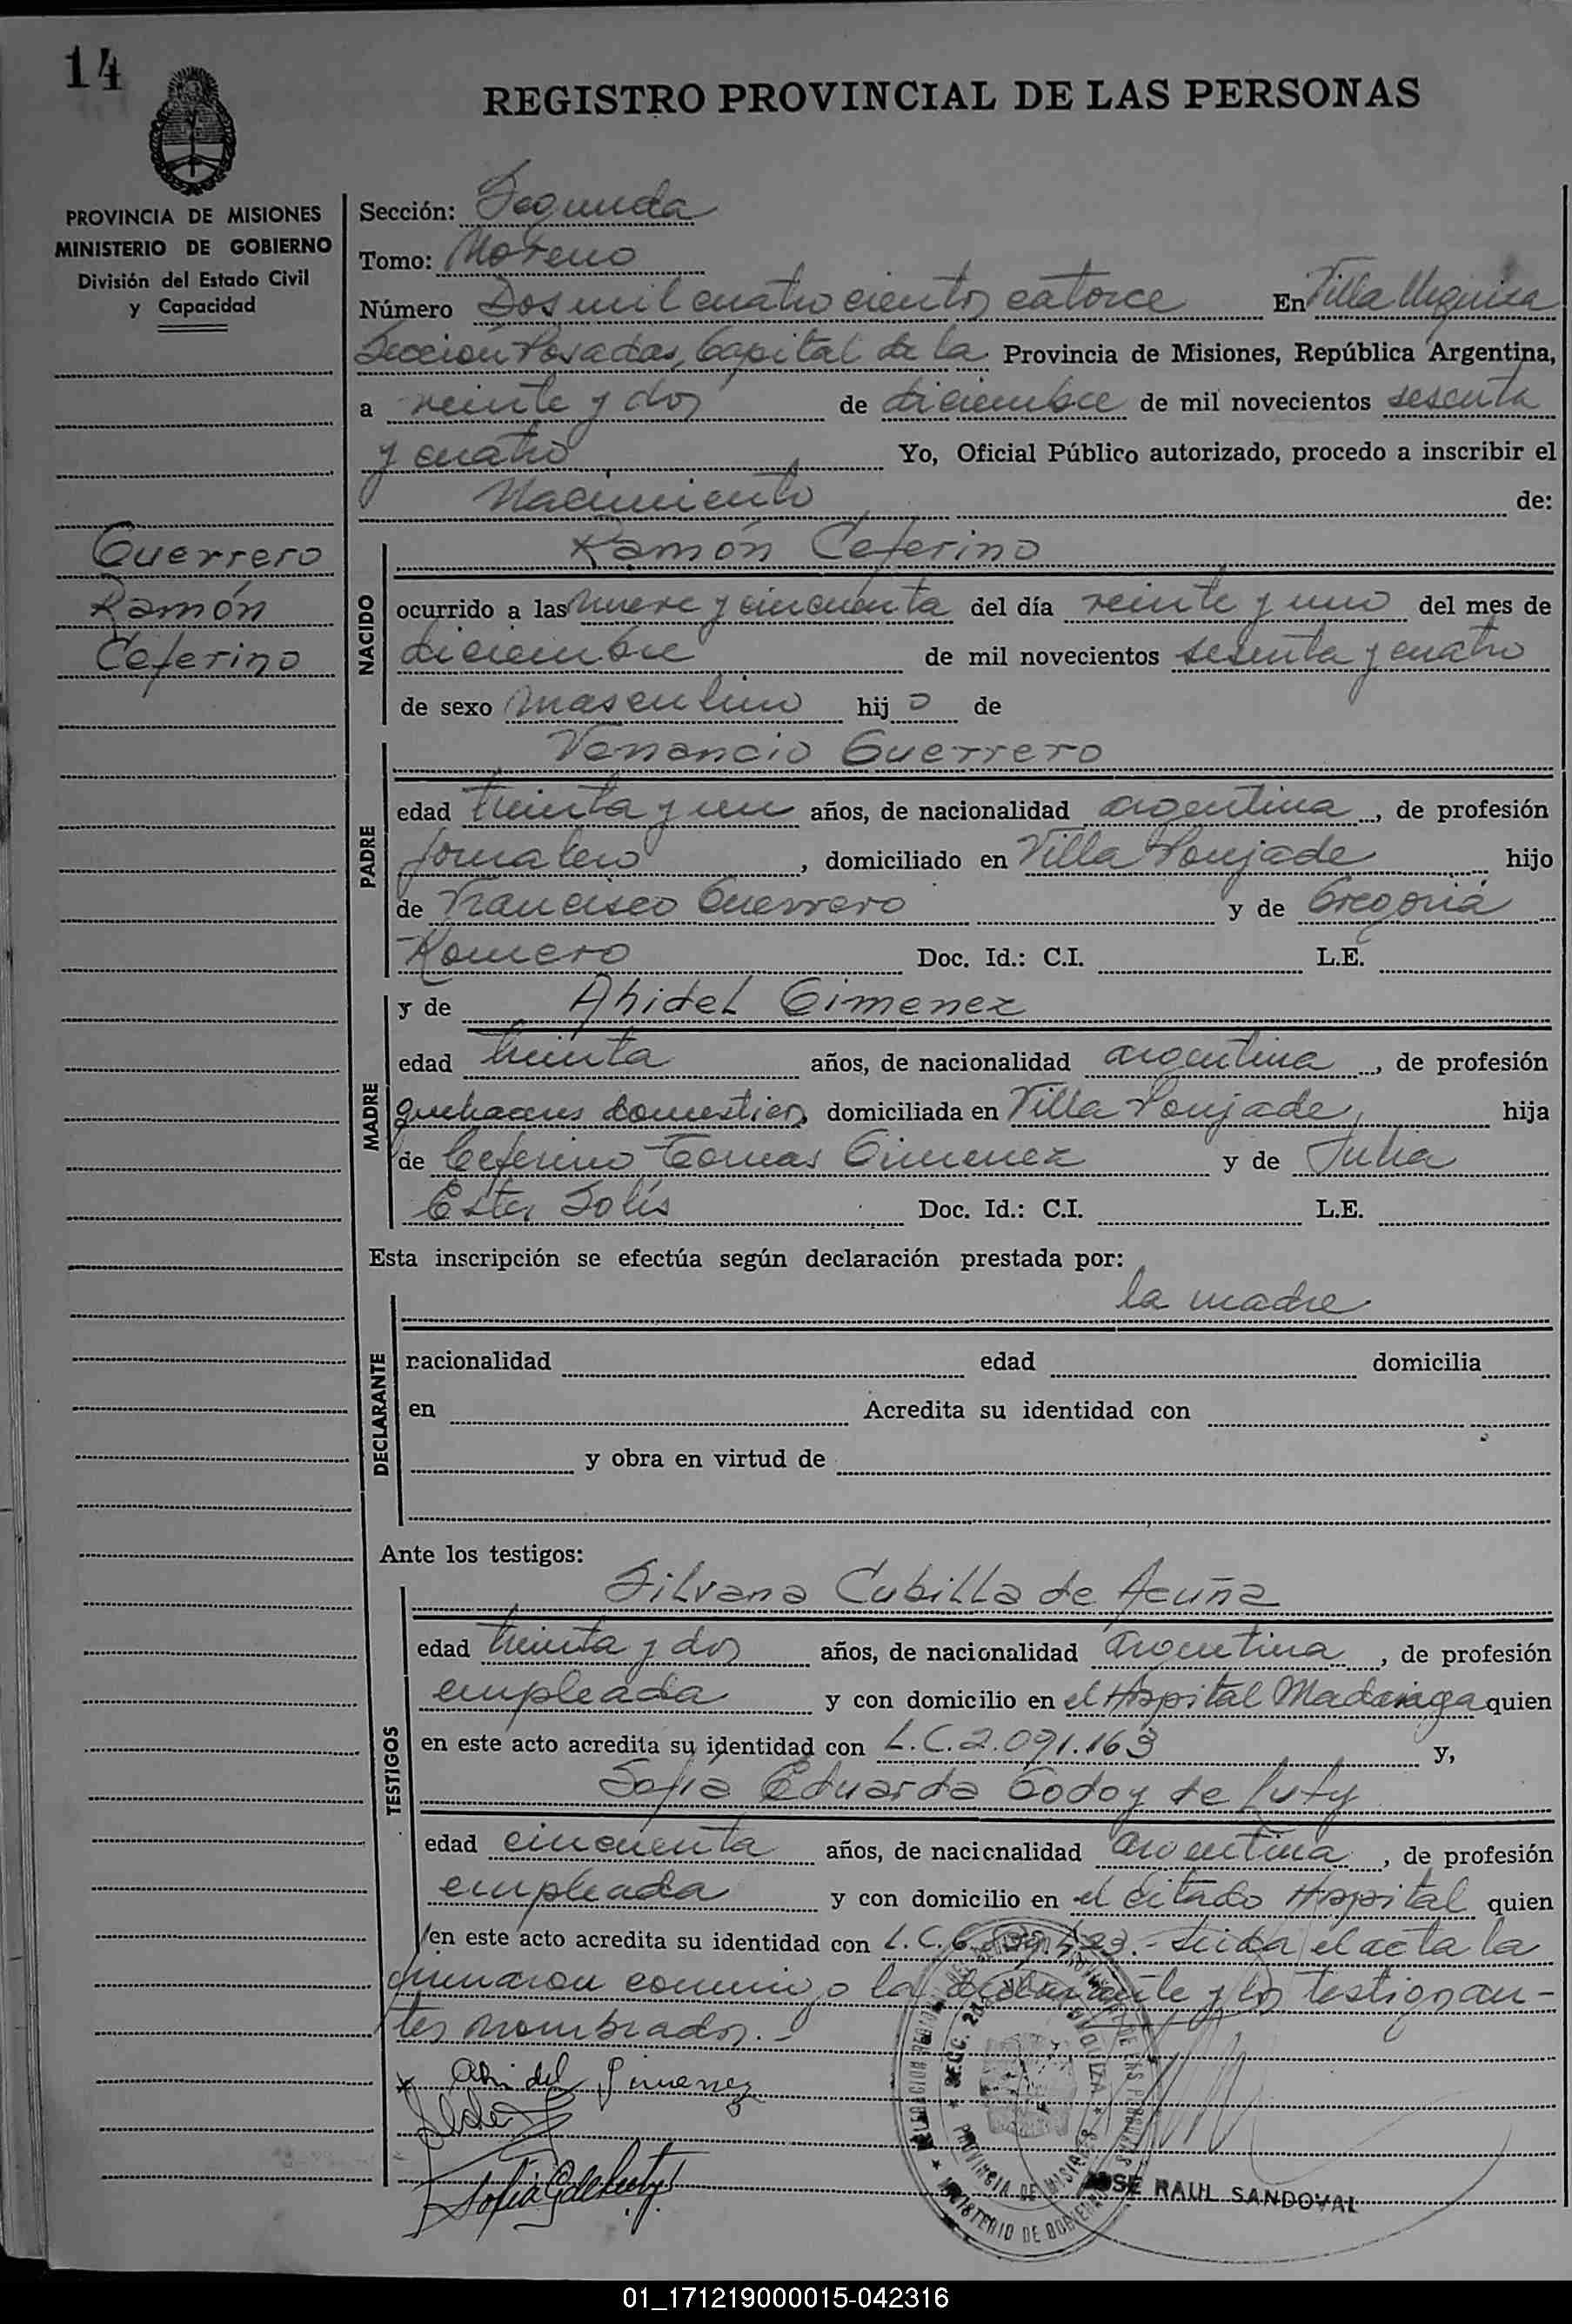 14
REGISTRO PROVINCIAL DE LAS PERSONAS
PROVINCIA DE MISIONES
MINISTERIO DE GOBIERNO
División del Estado Civil
y Capacidad
Guerrero
Ramón
Ceferino
Sección: Segunda
Tomo: Moreno
Número Dos mil cuatrocientos catorce En Villa Urquiza
Sección Posadas, Capital de la Provincia de Misiones, República Argentina,
a veinte y dos de diciembre de mil novecientos sesenta
y cuatro Yo, Oficial Público autorizado, procedo a inscribir el
Nacimiento de:
NACIDO
Ramón Ceferino
ocurrido a las nueve y cincuenta del día veinte y uno del mes de
diciembre de mil novecientos sesenta y cuatro
de sexo masculino hij o de
PADRE
Venancio Guerrero
edad treinta y un años, de nacionalidad argentina, de profesión
Jornalero, domiciliado en Villa Poujade hijo
de Francisco Guerrero y de Gregoria
Romero Doc. Id.: C.I. L.E.
MADRE
y de Ahidel Gimenez
edad treinta años, de nacionalidad argentina, de profesión
quehaceres domesticos, domiciliada en Villa Poujade, hija
de Ceferino Tomas Gimenez y de Julia
Ester Solís Doc. Id.: C.I. L.E.
Esta inscripción se efectúa según declaración prestada por:
la madre
DECLARANTE
nacionalidad edad domicilia
en Acredita su identidad con
y obra en virtud de
Ante los testigos:
TESTIGOS
Silvana Cubilla de Acuña
edad treinta y dos años, de nacionalidad argentina, de profesión
empleada y con domicilio en el Hospital Madariaga quien
en este acto acredita su identidad con L.C. 2.091.163 y,
Sofia Eduarda Godoy de Luty
edad cincuenta años, de nacionalidad argentina, de profesión
empleada y con domicilio en el citado Hospital quien
en este acto acredita su identidad con L.C. Leida el acta la
firmaron conmigo la declarante y los testigos an-
tes nombrados.-
x Ahidel Gimenez
PROVINCIA DE MISIONES
MINISTERIO DE GOBIERNO
JOSE RAUL SANDOVAL
01_171219000015-042316